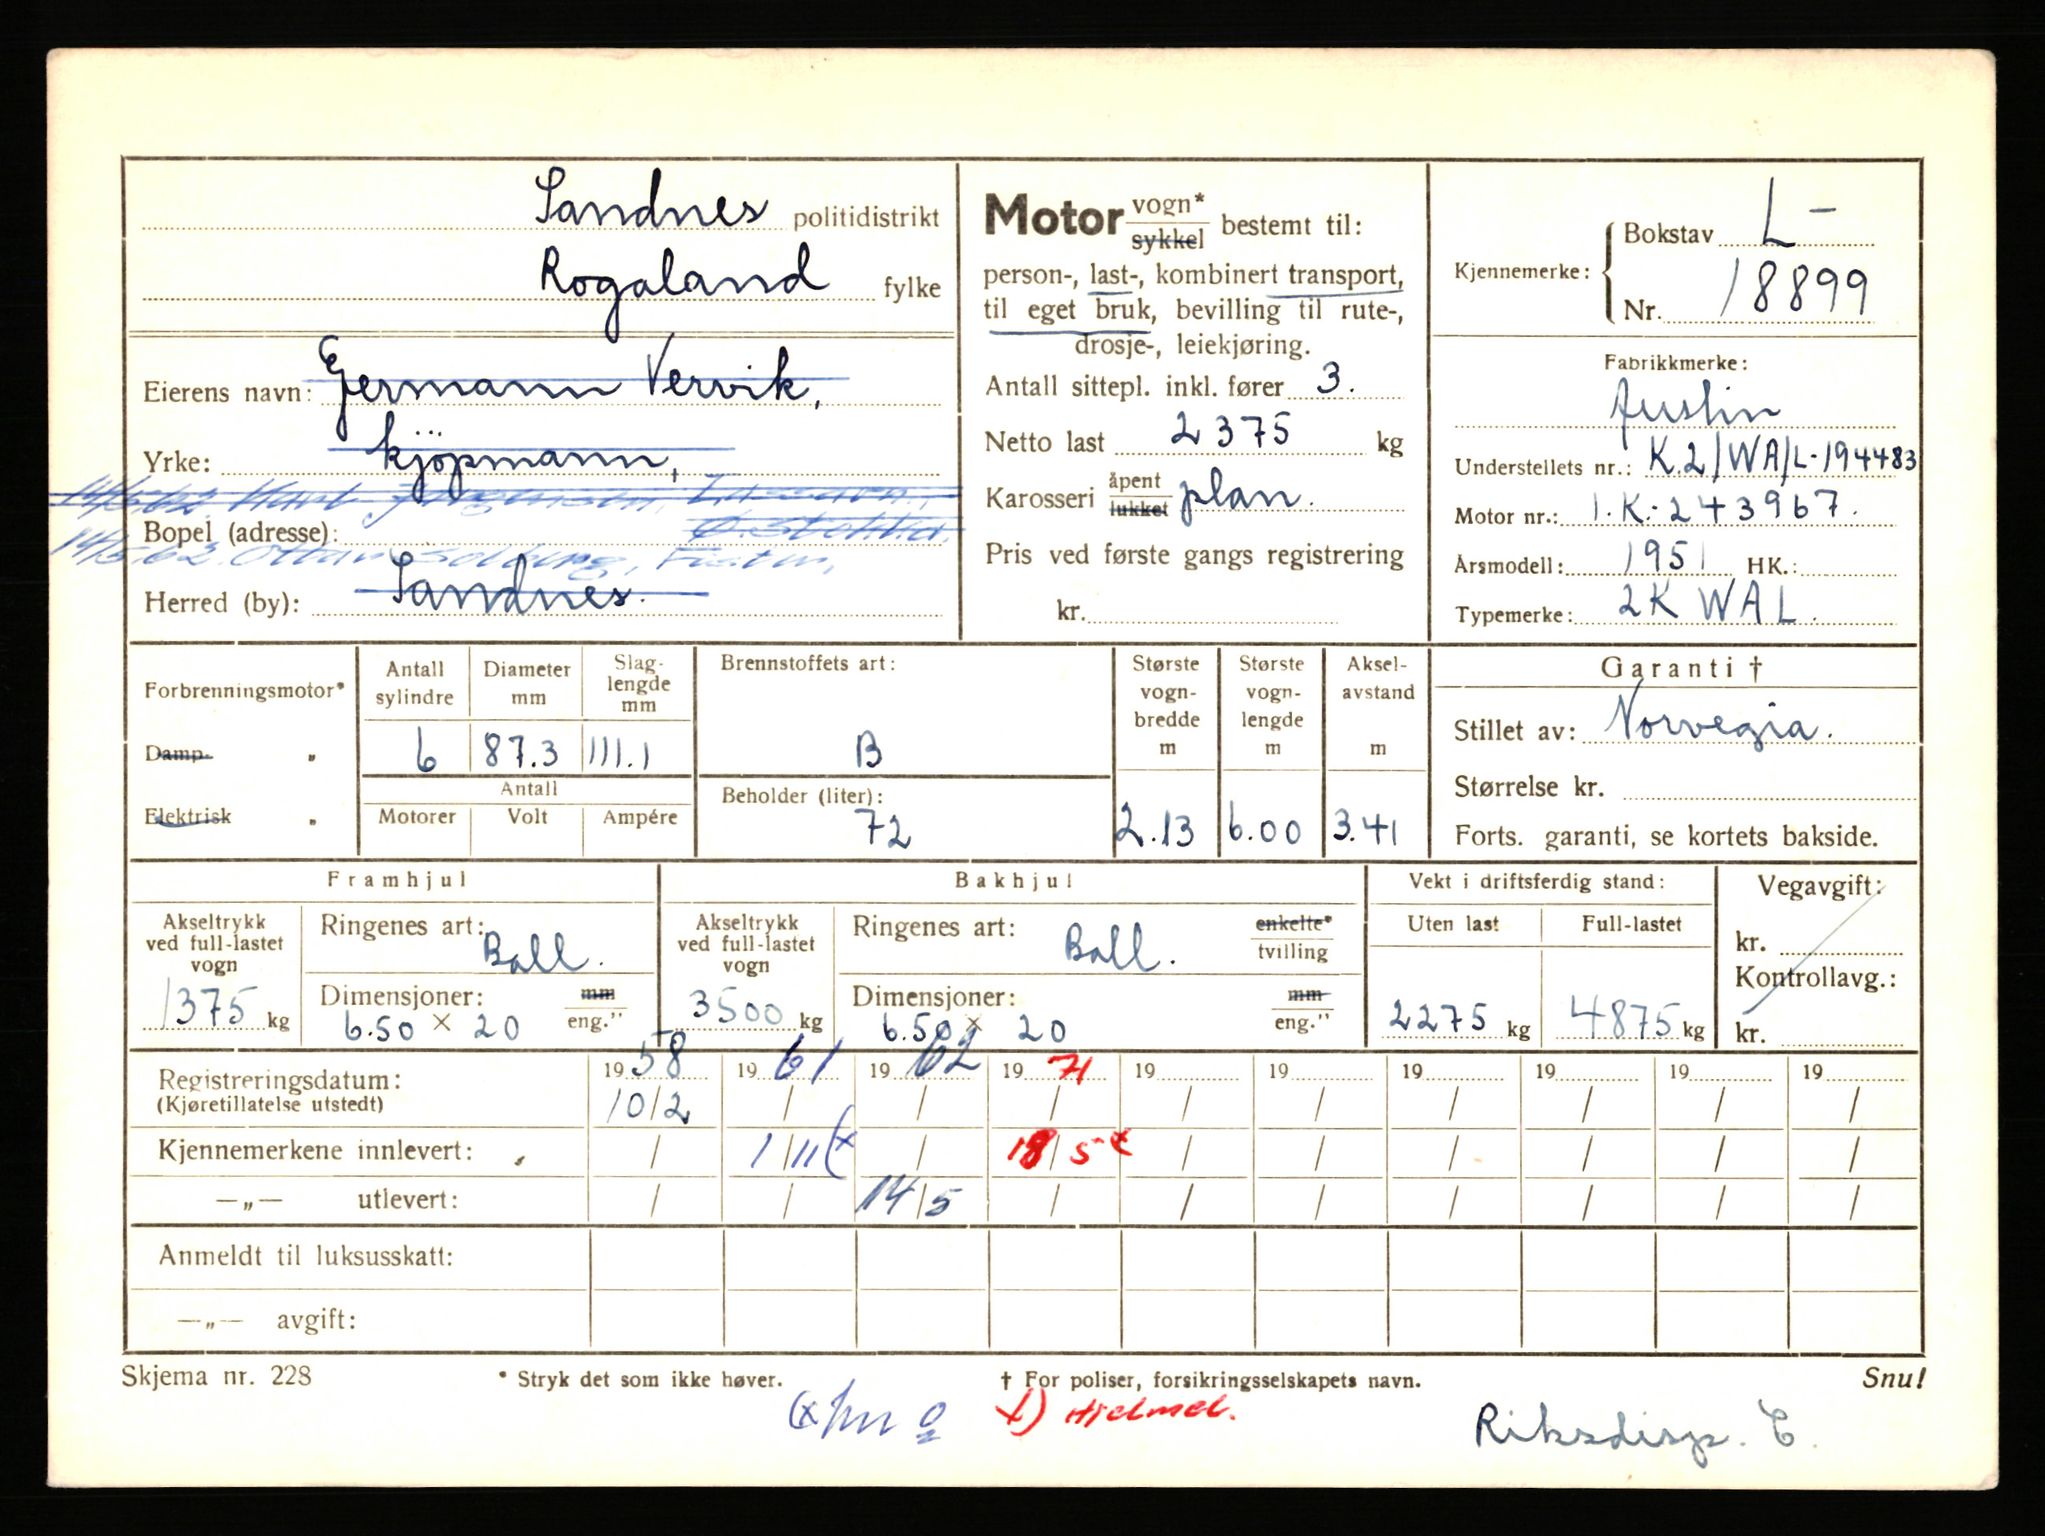 Sandnes politidistrikt
Rogaland fylke
Eierens navn: Germann Vervik,
Yrke: kjöpmann,
Bopel (adresse):
14/5 62. Ottar Solberg, Fister,
Herred (by): Sandnes.
Motor vogn* sykkel bestemt til:
person-, last-, kombinert transport,
til eget bruk, bevilling til rute-,
drosje-, leiekjøring.
Antall sittepl. inkl. fører 3.
Netto last 2375 kg
Karosseri åpent lukket plan.
Pris ved første gangs registrering
kr.
Kjennemerke: Bokstav L-
Nr. 18899
Fabrikkmerke:
Austin
Understellets nr.: K.2/WA/L-194483
Motor nr.: 1.K.-243967.
Årsmodell: 1951 HK.:
Typemerke: 2K WAL.
Forbrenningsmotor*
Damp- "
Elektrisk "
Antall sylindre Diameter mm Slag-lengde mm
6 87.3 111.1
Antall
Motorer Volt Ampére
Brennstoffets art:
B
Beholder (liter):
72
Største vogn-bredde m
2.13
Største vogn-lengde m
6.00
Aksel-avstand m
3.41
Garanti †
Stillet av: Norvegia.
Størrelse kr.
Forts. garanti, se kortets bakside.
Framhjul
Akseltrykk ved full-lastet vogn
1375 kg
Ringenes art: Ball.
Dimensjoner: mm eng."
6.50 x 20
Bakhjul
Akseltrykk ved full-lastet vogn
3500 kg
Ringenes art: Ball. enkelte* tvilling
Dimensjoner: mm eng."
6.50 x 20
Vekt i driftsferdig stand:
Uten last Full-lastet
2275 kg 4875 kg
Vegavgift:
kr.
Kontrollavg.:
kr.
Registreringsdatum: 1958 1961 1962 1971 19 19 19 19 19 19
(Kjøretillatelse utstedt) 10/2 / / / / / / / / /
Kjennemerkene innlevert: / 1/11 (x / 18/5 x / / / / / /
—„— utlevert: / / 14/5 / / / / / / /
Anmeldt til luksusskatt:
—„— avgift:
Skjema nr. 228
* Stryk det som ikke høver.
† For poliser, forsikringsselskapets navn.
Snu!
x) Hjelmel.
Riksdisp. C.